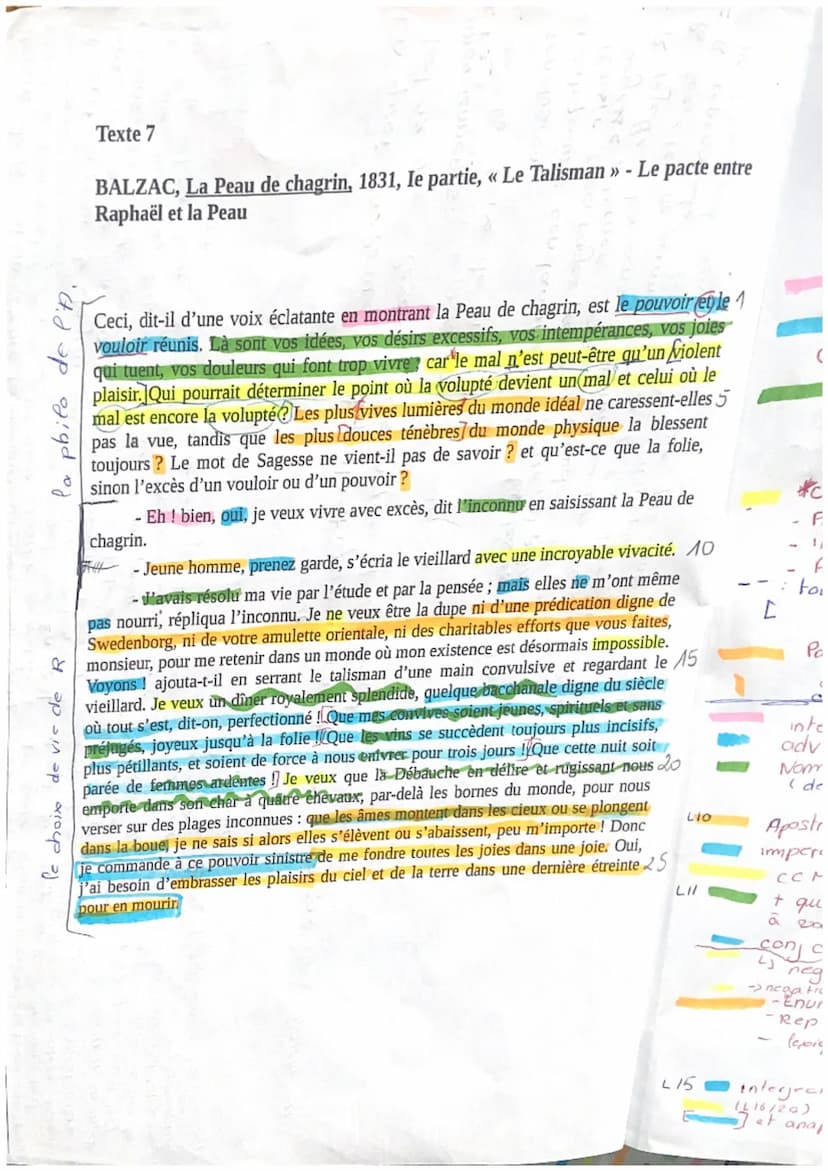 Texte 7
BALZAC, La Peau de chagrin, 1831, Ie partie, « Le Talisman » - Le pacte entre
Raphaël et la Peau
la philo de l'A.
Ceci, dit-il d'une voix éclatante en montrant la Peau de chagrin, est le pouvoir et le 1
vouloir réunis. Là sont vos idées, vos désirs excessifs, vos intempérances, vos joies
qui tuent, vos douleurs qui font trop vivre ; car le mal n'est peut-être qu'un violent
plaisir.] Qui pourrait déterminer le point où la volupté devient un mal et celui où le
mal est encore la volupté ? Les plus vives lumières du monde idéal ne caressent-elles 5
pas la vue, tandis que les plus [douces ténèbres] du monde physique la blessent
toujours ? Le mot de Sagesse ne vient-il pas de savoir ? et qu'est-ce que la folie,
sinon l'excès d'un vouloir ou d'un pouvoir ?
- Eh ! bien, oui, je veux vivre avec excès, dit l'inconnu en saisissant la Peau de
chagrin.
- Jeune homme, prenez garde, s'écria le vieillard avec une incroyable vivacité. 10
le choix de vie de R
- J'avais résolu ma vie par l'étude et par la pensée ; mais elles ne m'ont même
pas nourri, répliqua l'inconnu. Je ne veux être la dupe ni d'une prédication digne de
Swedenborg, ni de votre amulette orientale, ni des charitables efforts que vous faites,
monsieur, pour me retenir dans un monde où mon existence est désormais impossible.
Voyons ! ajouta-t-il en serrant le talisman d'une main convulsive et regardant le 15
vieillard. Je veux un dîner royalement splendide, quelque bacchanale digne du siècle
où tout s'est, dit-on, perfectionné ! [Que mes convives soient jeunes, spirituels et sans
préjugés, joyeux jusqu'à la folie ! Que les vins se succèdent toujours plus incisifs,
plus pétillants, et soient de force à nous enivrer pour trois jours ! Que cette nuit soit
parée de femmes ardentes !] Je veux que la Débauche en délire et rugissant nous 20
emporte dans son char à quatre chevaux, par-delà les bornes du monde, pour nous
verser sur des plages inconnues : que les âmes montent dans les cieux ou se plongent
dans la boue, je ne sais si alors elles s'élèvent ou s'abaissent, peu m'importe ! Donc
je commande à ce pouvoir sinistre de me fondre toutes les joies dans une joie. Oui,
j'ai besoin d'embrasser les plaisirs du ciel et de la terre dans une dernière étreinte 25
pour en mourir.
inte
adv
L10
Apostr
impera
CC M
L11
+ qu
conj c
neg
- Enum
- Rep
L15
interjec
(L16/20)
et anap